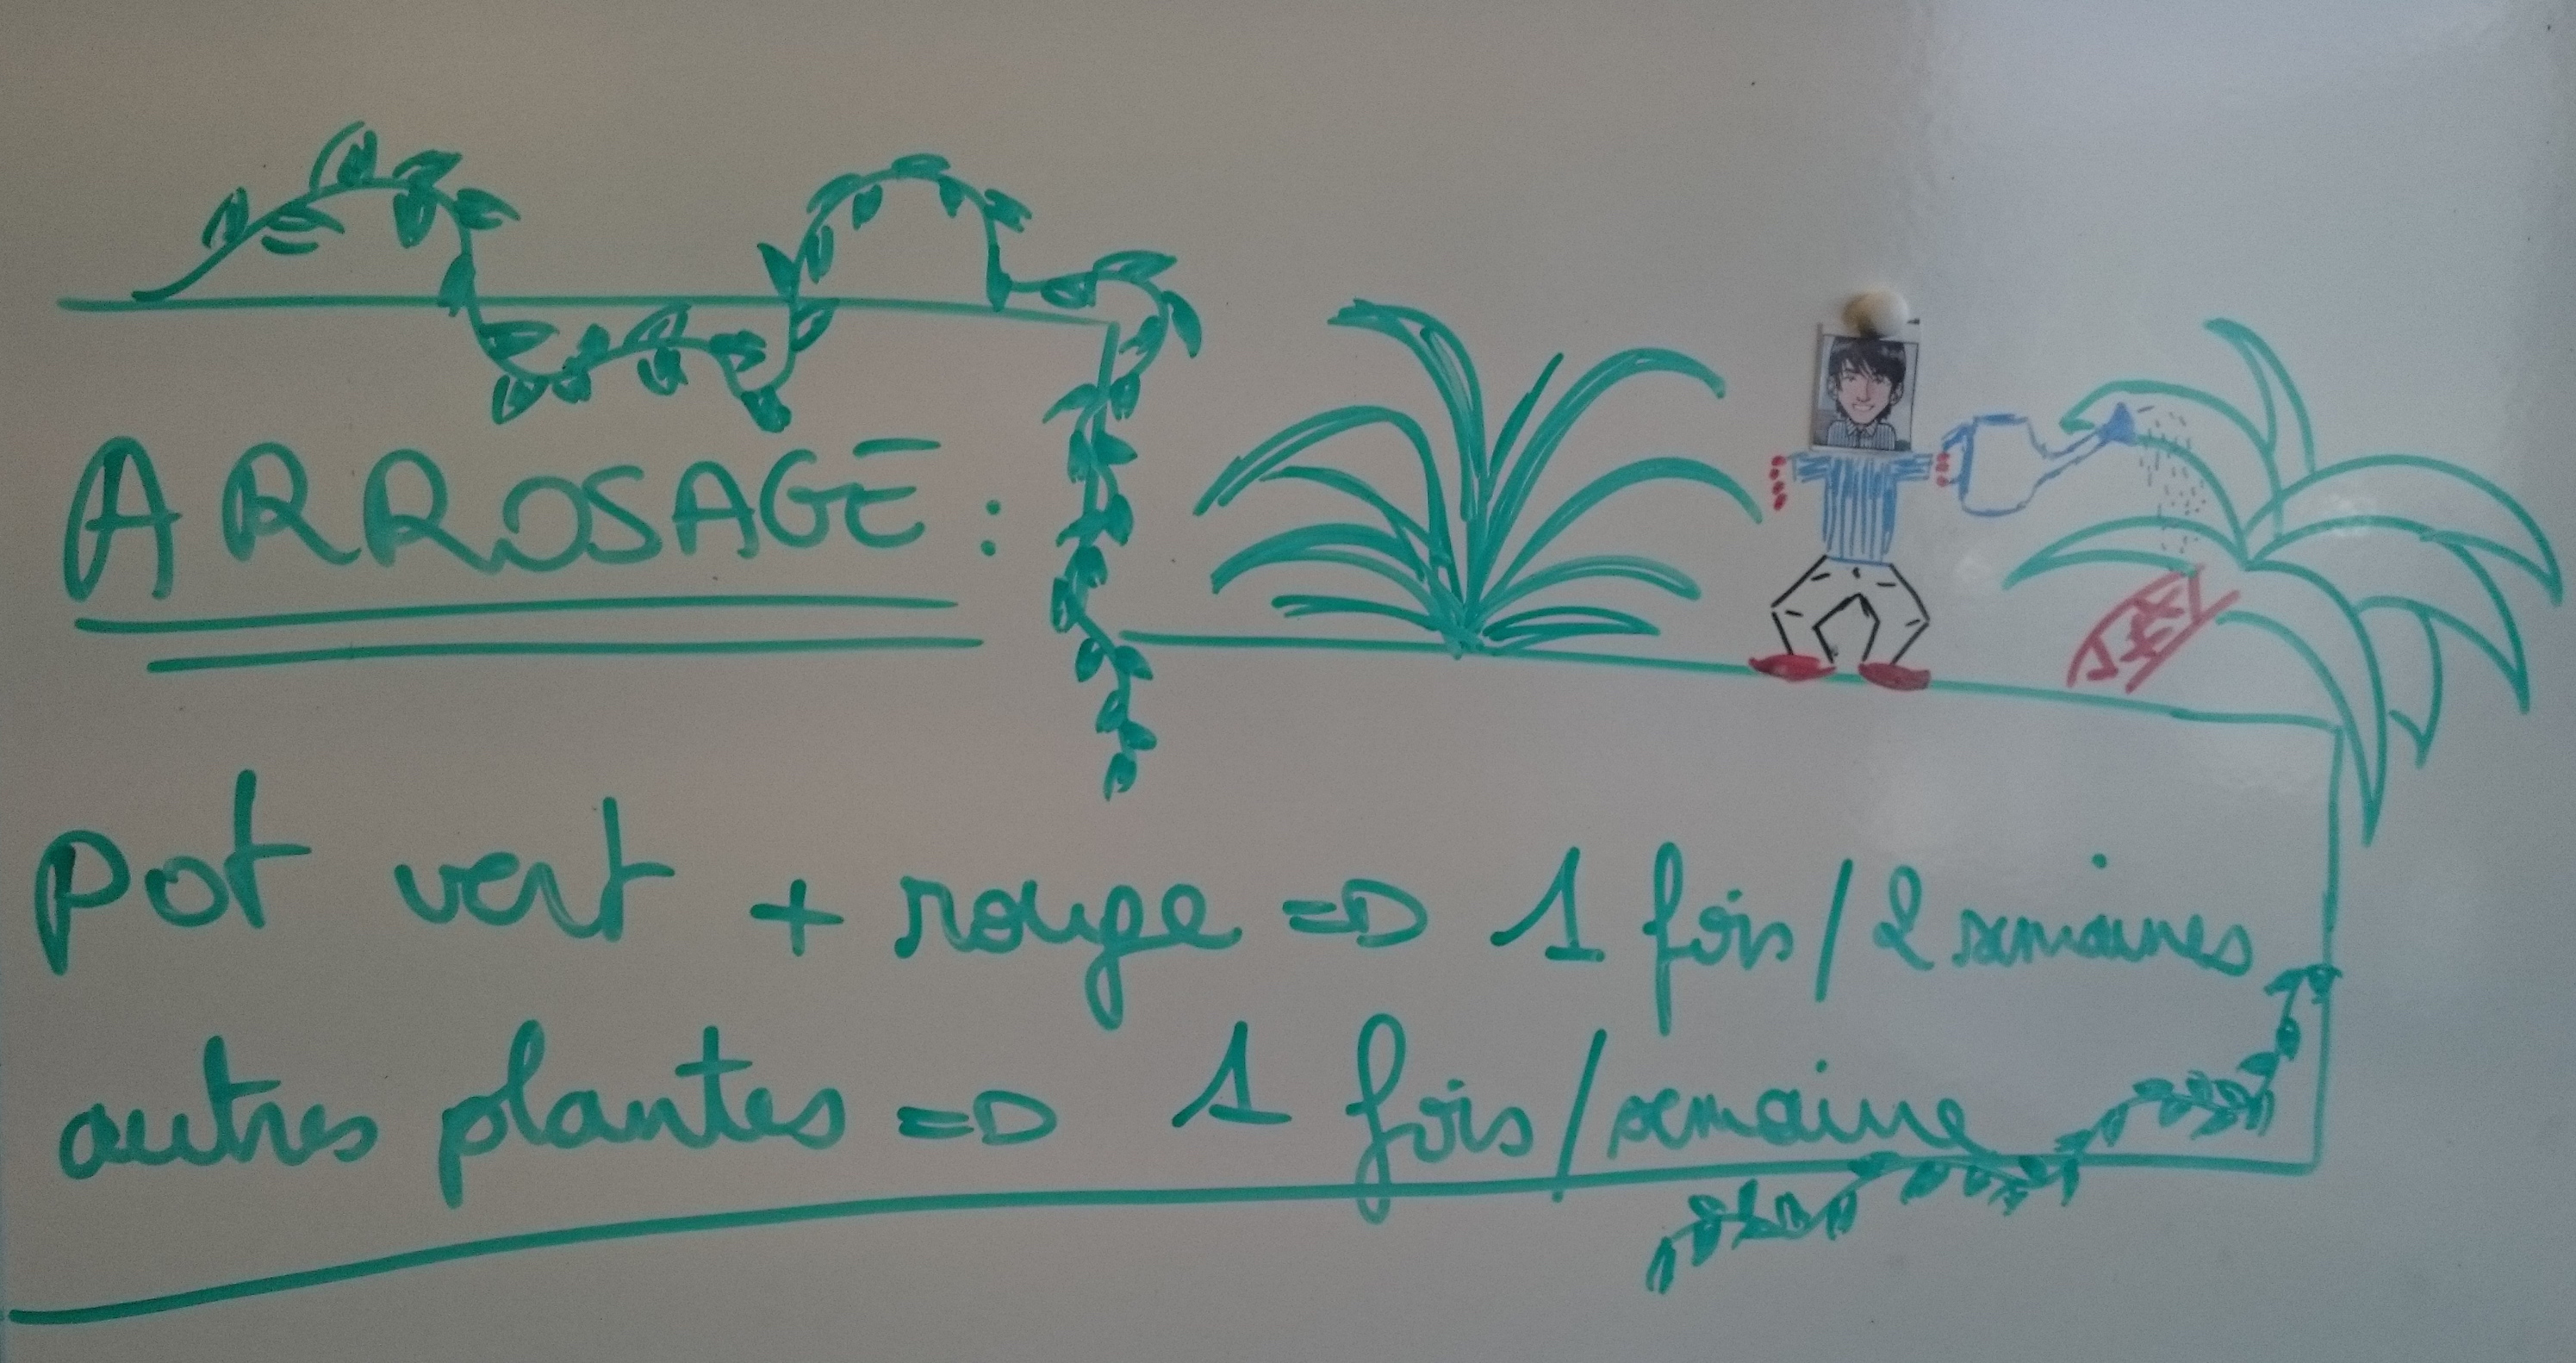 ARROSAGE :
pot vert + rouge => 1 fois / 2 semaines
autres plantes => 1 fois / semaine